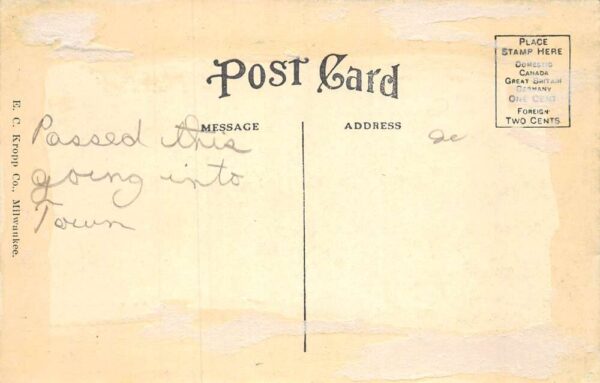 POST CARD
PLACE
STAMP HERE
DOMESTIC
CANADA
GREAT BRITAIN
GERMANY
ONE CENT
FOREIGN
TWO CENTS
MESSAGE
ADDRESS
Passed this
going into
Town
E. C. Kropp Co., Milwaukee.